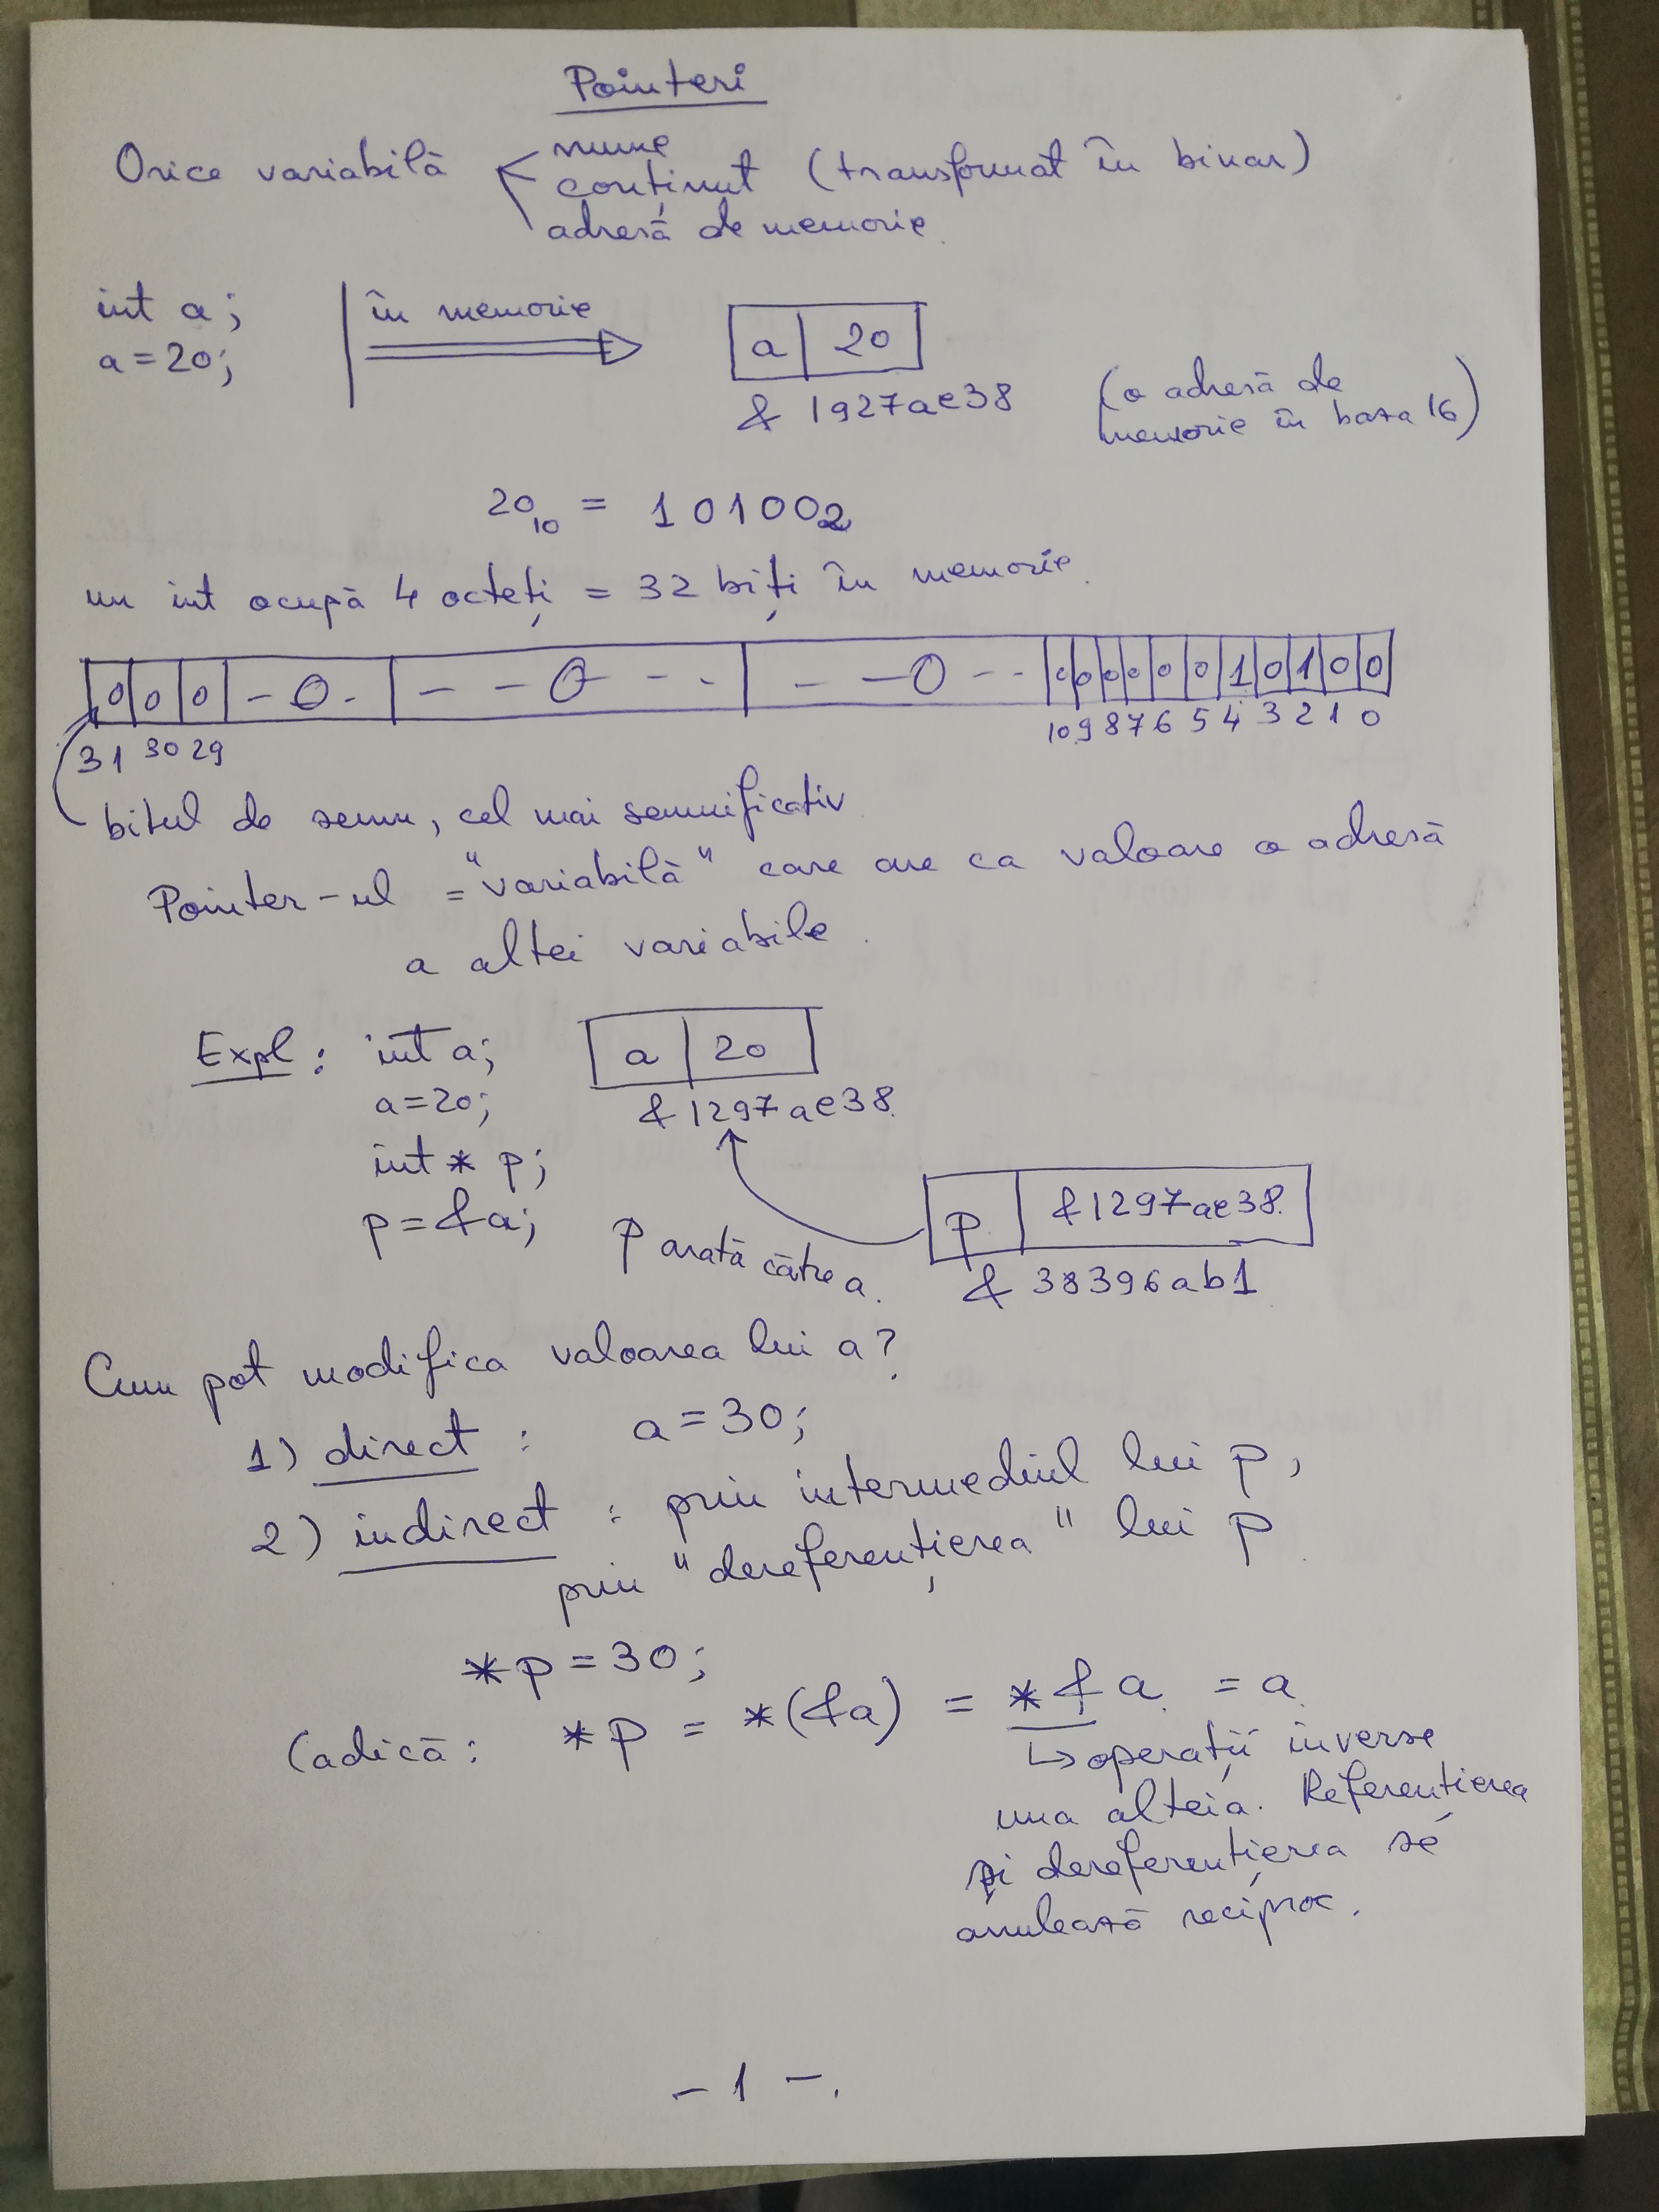 Pointeri
Orice variabilă
nume
conținut (transformat în binar)
adresă de memorie.
int a;
a=20;
în memorie
a 20
& 1927ae38
(o adresă de
memorie în baza 16)
20₁₀ = 10100₂
un int ocupă 4 octeți = 32 biți în memorie.
0 0 0 - 0 - - - 0 - - - - 0 - - 0 0 0 0 0 0 1 0 1 0 0
31 30 29 10 9 8 7 6 5 4 3 2 1 0
bitul de semn, cel mai semnificativ
Pointer-ul = "variabilă" care are ca valoare o adresă
a altei variabile.
Expl: int a;
a=20;
int* p;
p=&a;
a 20
&1297ae38.
p &1297ae38.
& 38396ab1
p arată către a.
Cum pot modifica valoarea lui a?
1) direct : a=30;
2) indirect : prin intermediul lui p,
prin "dereferențierea" lui p
*p=30;
(adică: *p = *(&a) = *&a = a.
↳ operații inverse
una alteia. Referențierea
și dereferențierea se
anulează reciproc.
- 1 -.